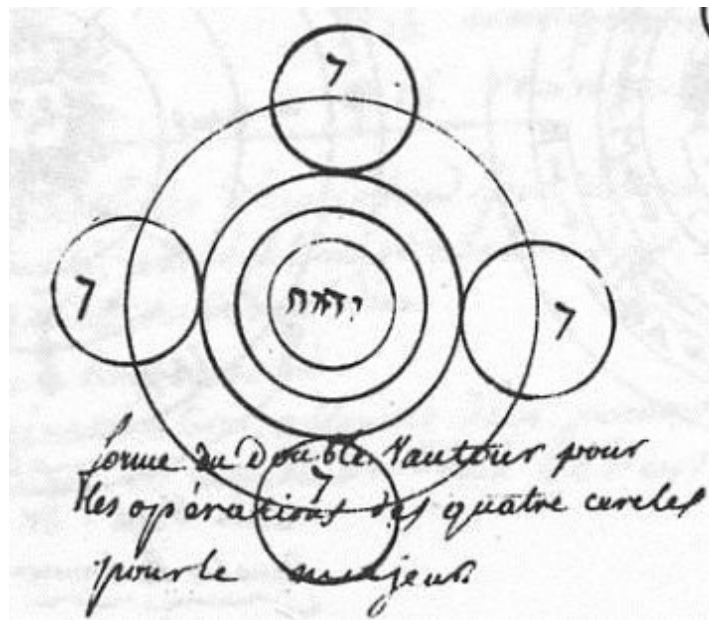 7
7 יהוה 7
forme du Double Vautour pour
7
les opérations des quatre cercles
pour le majeur